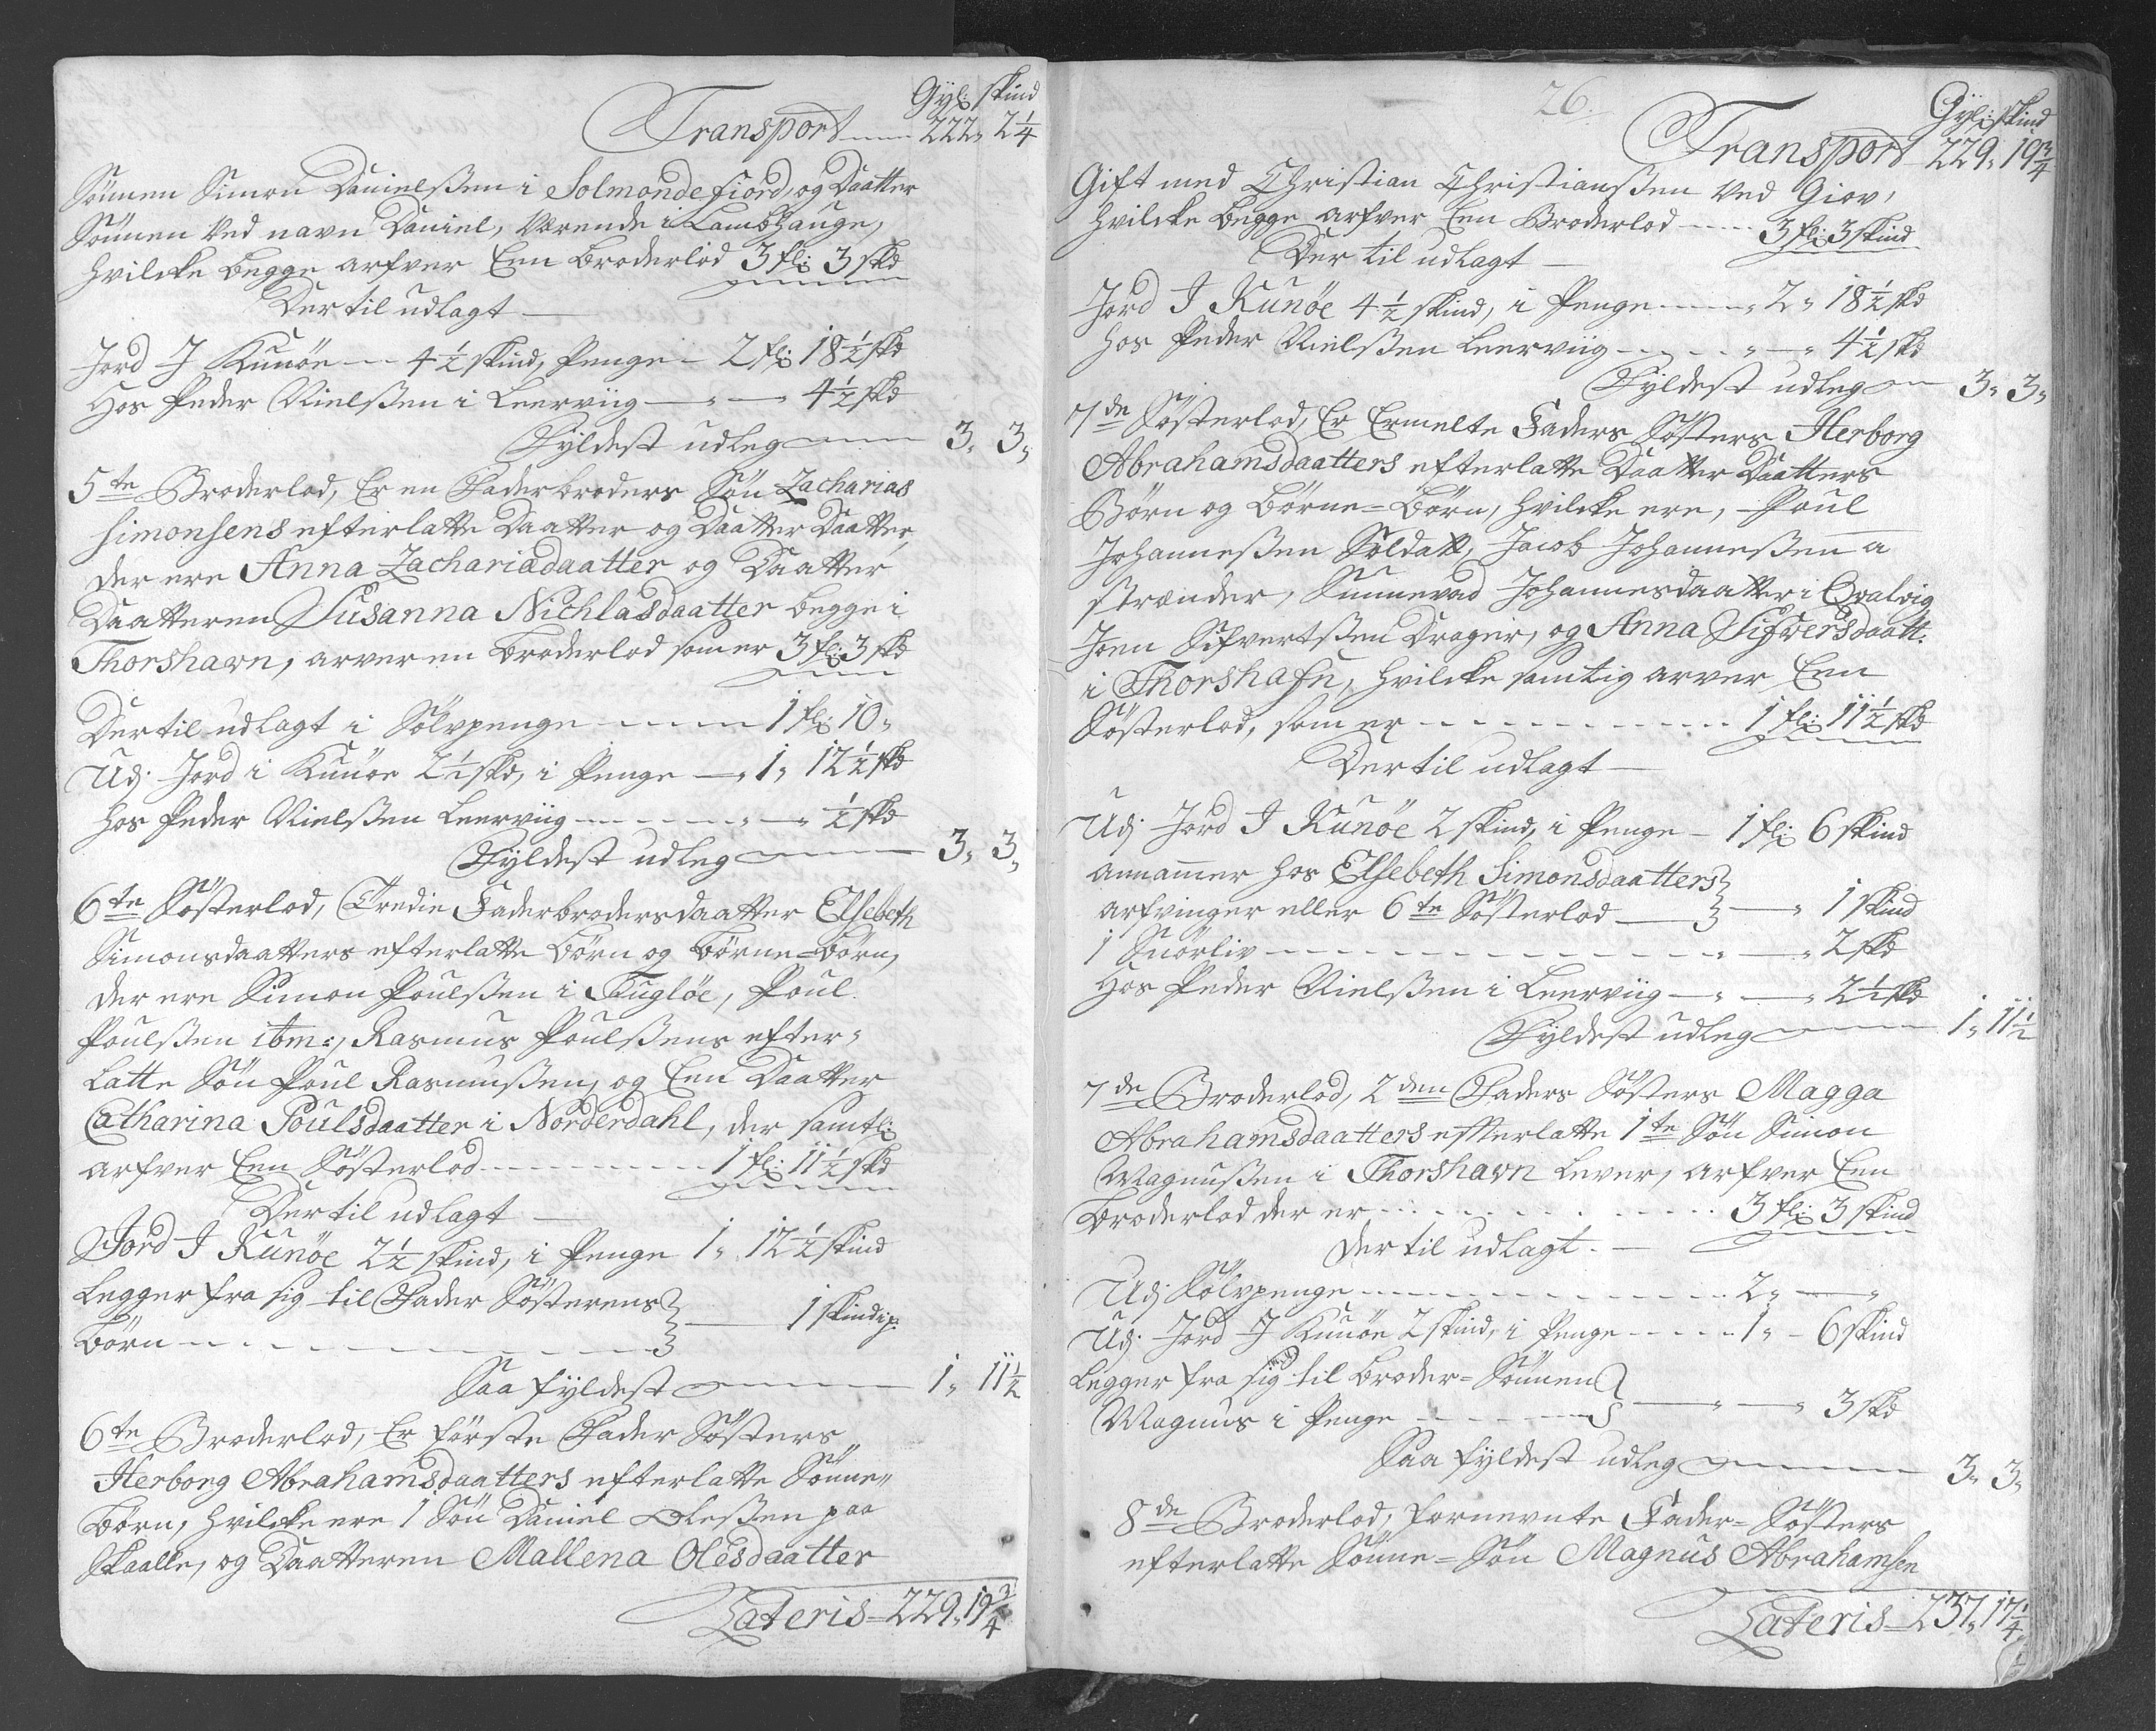 Gyl: skind
Transport 222„ 2 1/4
Sönnen Simon Danielßen i Solmonde fiord, og Daatter
Sönnen ved navn Daniel, Værende i Lambhauge,
hvilcke begge arfver Een broderlod 3 fl: 3 skd
Dertil udlagt
Jord J Kunöe 4 1/2 skind, Penge 2 fl: 18 1/2 skd
Hos Peder Nielßen i Leerviig „ 4 1/2 skd
Fyldest udleg 3„ 3„
5te Broderlod, Er en Faderbroders Sön Zacharias
Simonsens efterlatte Daatter og Daatter Daatter,
der ere Anna Zachariædaatter og Daatter
Daatteren Susanna Nichlasdaatter begge i
Thorshavn, arver en broderlod som er 3 fl: 3 skd
Dertil udlagt i Sölvpenge 1 fl: 10„
Udj Jord i Kunöe 2 1/2 skd, i Penge „ 1„ 12 1/2 skd
Hos Peder Nielßen Leerviig „ „ 1/2 skd
Fyldest udleg 3„ 3„
6te Sösterlod, Tredie Faderbrodersdaatter Elsebeth
Simonsdaatters efterlatte börn og börne=börn,
der ere Simon Poulßen i Fuglöe, Poul
Poulßen ibm:, Rasmus Poulßens efter=
latte Sön Poul Rasmußen, og Een Daatter
Catharina Poulsdaatter i Norderdahl, der samtl:
arfver Een Sösterlod 1 fl: 11 1/2 skd
Dertil udlagt
Jord J Kunöe 2 1/2 skind, i Penge 1„ 12 1/2 skind
Legger fra sig til Fader Sösterens
börn 1 skind i p.
Saa fyldest 1„ 11 1/2
6te Broderlod, Er förste Fader Sösters
Herborg Abrahamsdaatters efterlatte Sönne=
börn, hvilcke ere 1 Sön Daniel Oleßen paa
Skaalle, og Daatteren Mallena Olesdaatter
Lateris 229„ 19 3/4
26.
Gyl: skind
Transport 229„ 19 3/4
Gift med Christian Christianßen ved Giov,
hvilcke begge arfver Een Broderlod 3 fl: 3 skind
Der til udlagt
Jord J Kunöe 4 1/2 skind, i Penge „ 2„ 18 1/2 skd
Hos Peder Nielßen Leerviig „ „ 4 1/2 skd
Fyldest udleg 3„ 3„
7de Sösterlod, Er Ermelte Faders Sösters Herborg
Abrahamsdaatters efterlatte Daatter Daatters
Börn og Börne=Börn, hvilcke ere, Poul
Johanneßen Soldatt, Jacob Johanneßen a
strænder, Sunnevad Johannesdaatter i Qvalvig
Joen Sifvertßen Drager, og Anna Sigversdaatt:
i Thorshafn, hvilcke samtig arver Een
Sösterlod, som er 1 fl: 11 1/2 skd
Dertil udlagt
Udj Jord J Kunöe 2 skind, i Penge 1 fl: 6 skind
annammer hos Elsebeth Simonsdaatters
arfvinger eller 6te Sösterlod „ 1 skind
1 Snörliv „ „ 2 skd
Hos Peder Nielßen i Leerviig „ „ 2 1/2 skd
Fyldest udleg 1„ 11 1/2
7de Broderlod, 2den Faders Sösters Magga
Abrahamsdaatters efterlatte 1te Sön Simon
Magnußen i Thorshavn lever, arfver Een
Broderlod der er 3 fl: 3 skind
Dertil udlagt.
Udj Sölvpenge 2„ „
Udj Jord J Kunöe 2 skind, i Penge 1„ 6 skind
Legger fra sig til Broder=Sönnen
Magnus i Penge „ „ 3 skd
Saa fyldest udleg 3„ 3„
8de Broderlod, fornevnte Fader=Sösters
efterlatte Sönne=Sön Magnus Abrahamsen
Lateris 237„ 17 1/4